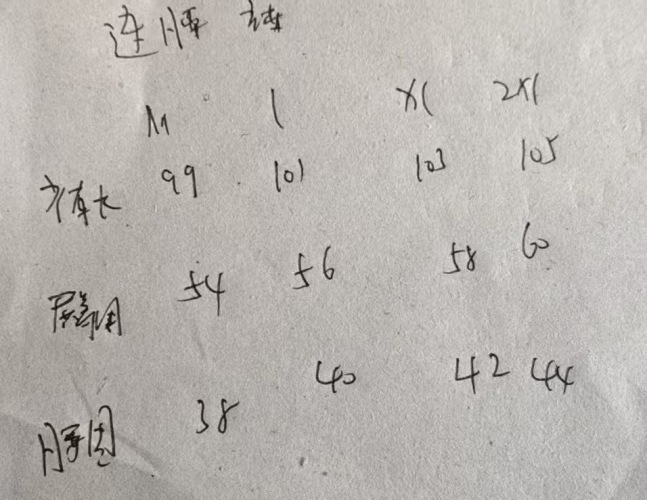 连脾裤
M L XL 2XL
裤长 99 101 103 105
臀围 54 56 58 60
脾围 38 40 42 44